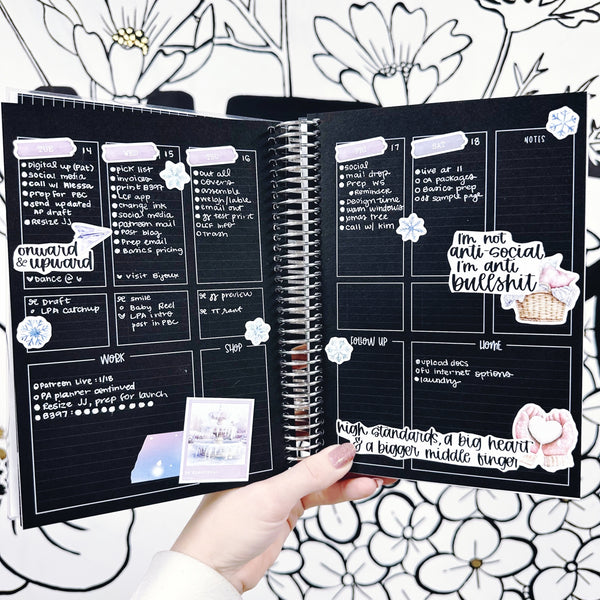 TUE 14
digital up (Pat)
social media
call w/ Alessa
prep for PBC
send updated
AP draft
Resize JJ
onward
& upward
dance @
Draft
LPA catchup
WED 15
pick list
invoices
print B397
LCF app
change ink
social media
patreon mail
Post blog
Prep email
Basics pricing
visit Bijoux
smile
Baby Reel
LPA intro
post in PBC
16
out all
covers
assemble
weigh/lable
Email out
gy test print
LCF info
Trash
gy preview
TT rant
WORK
Patreon Live : 1/18
PA planner continued
Resize JJ, prep for launch
B397 :
SHOP
FRI 17
social
mail drop
Prep WS
Reminder
Design time
warm windows
xmas tree
Call w/ Kim
SAT 18
live at 11
CA packages
Basics prep
sample page
NOTES
I'm not
anti-social,
I'm anti
bullshit
FOLLOW UP
HOME
upload docs
FU internet options
laundry
high standards, a big heart,
& a bigger middle finger